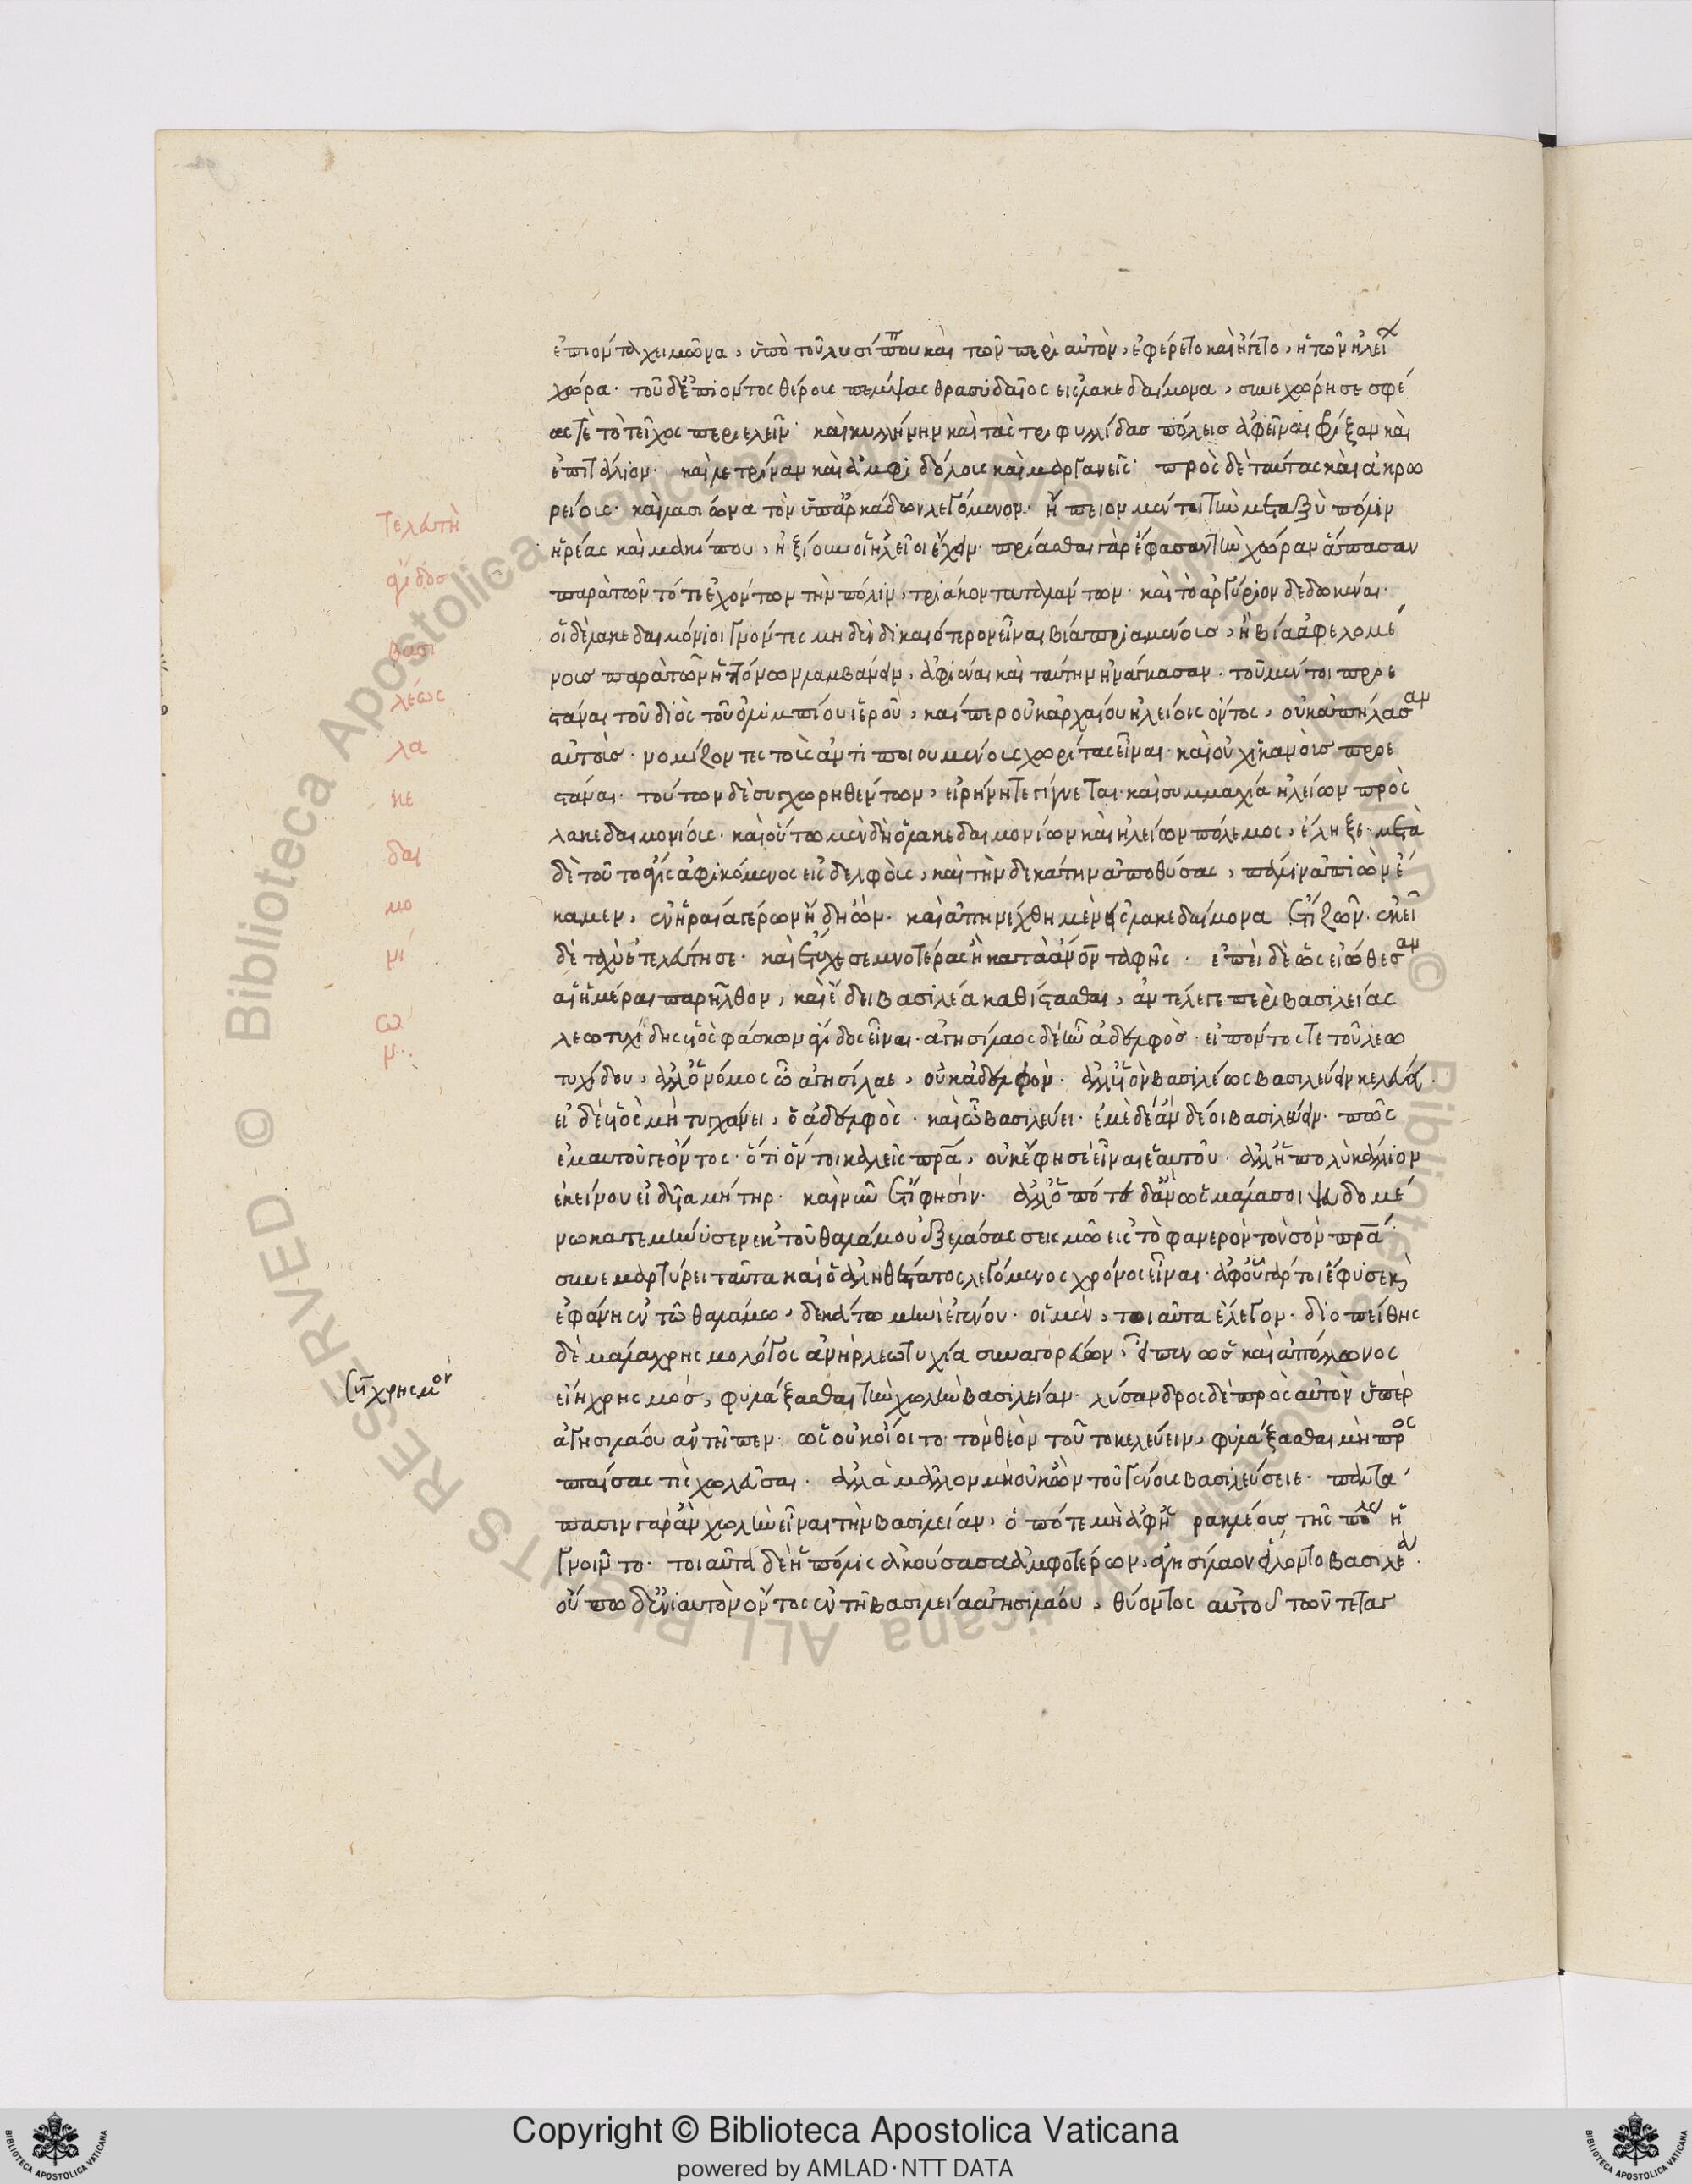 ἐπιόντα χειμῶνα, ὑπὸ τοῦ λυσίππου καὶ τῶν περὶ αὐτὸν, ἐφέρετο καὶ ἤγετο, ἡ τῶν ἠλείων
χώρα. τοῦ δὲ ἐπιόντος θέρους πέμψας θρασυδαῖος εἰς λακεδαίμονα, συνεχώρησε σφέ
ας τὲ τὸ τεῖχος περιελεῖν. καὶ κυλλήνην καὶ τὰς τριφυλλίδας πόλεις ἀφεῖναι φρίξαν καὶ
ἐπιτάλιον. καὶ λετρίναν καὶ ἀμφιδόλους καὶ μαργανεῖς. πρὸς δὲ ταύτας καὶ ἀκρω
ρείους. καὶ λασιῶνα τὸν ὑπ' ἀρκάδων λεγόμενον. ἤπειον μέντοι τὴν μεταξὺ πόλιν
ἡρέας καὶ μακίπου, ἠξίουν οἱ ἠλεῖοι ἔχειν. πρίασθαι γὰρ ἔφασαν τὴν χώραν ἅπασαν
παρὰ τῶν τότε ἐχόντων τὴν πόλιν, τριάκοντα ταλάντων. καὶ τὸ ἀργύριον δεδωκέναι.
οἱ δὲ λακεδαιμόνιοι γνόντες μηδὲν δικαιότερον εἶναι βία πριαμένοις, ἢ βία ἀφελομέ
νοις παρὰ τῶν ἡττόνων λαμβάνειν, ἀφιέναι καὶ ταύτην ἠνάγκασαν. τοῦ μέντοι προε
στάναι τοῦ διὸς τοῦ ὀλυμπίου ἱεροῦ, καίπερ οὐκ ἀρχαίου ἠλείοις ὄντος, οὐκ ἀπήλασαν
αὐτοὺς. νομίζοντες τοὺς ἀντιποιουμένους χωρίτας εἶναι. καὶ οὐχ ἱκανοὺς προε
στάναι. τούτων δὲ συγχωρηθέντων, εἰρήνη τε γίγνεται καὶ συμμαχία ἠλείων πρὸς
λακεδαιμονίους. καὶ οὕτω μὲν δὴ ὁ λακεδαιμονίων καὶ ἠλείων πόλεμος, ἔληξε. μετὰ
δὲ τοῦτο ἆγις ἀφικόμενος εἰς δελφοὺς, καὶ τὴν δεκάτην ἀποθύσας, πάλιν ἀπιὼν ἔ
καμεν, ἐν ἡραία γέρων ἤδη ὢν. καὶ ἀπηνέχθη μὲν εἰς λακεδαίμονα ἔτι ζῶν. ἐκεῖ
δὲ ταχὺ ἐτελεύτησε. καὶ ἔτυχε σεμνοτέρας ἢ κατὰ ἄνον ταφῆς. ἐπεὶ δὲ ὡς εἰώθεσαν
αἱ ἡμέραι παρῆλθον, καὶ ἔδει βασιλέα καθίστασθαι, ἀντέλεγε περὶ βασιλείας
λεωτυχίδης υἱὸς φάσκων ἄγιδος εἶναι. ἀγησίλαος δὲ ὢν ἀδελφὸς. εἰπόντος τε τοῦ λεω
τυχίδου, ἀλλ' ὁ νόμος ὦ ἀγησίλαε, οὐκ ἀδελφὸν. ἀλλ' υἱὸν βασιλέως βασιλεύειν κελεύει.
εἰ δὲ υἱὸς μὴ τυγχάνει, ὁ ἀδελφὸς. καὶ ὣς βασιλεύει. ἐμὲ δὲ ἂν δέοι βασιλεύειν. πῶς
ἐμαυτοῦ γε ὄντος. ὅτι ὅν τοι καλεῖς πρα, οὐκ ἔφησέ εἶναι ἑαυτοῦ. ἀλλ' ἡ πολὺ κάλλιον
ἐκείνου εἰδυῖα μήτηρ. καὶ νῦν ἔτι φησίν. ἀλλ' ὁ ποτειδᾶν ὡς μάλα σοι ψευδομέ
νω κατεμήνυσεν ἐκ τοῦ θαλάμου ἐξελάσας σεισμῶ εἰς τὸ φανερὸν τὸν σὸν πρα
συνεμαρτύρει ταῦτα καὶ ὁ ἀληθέστατος λεγόμενος χρόνος εἶναι. ἀφ' οὗ γάρ τοι ἔφυσε καὶ
ἐφάνη ἐν τῶ θαλάμω, δεκάτω μηνὶ ἐγένου. οἱ μὲν, τοιαῦτα ἔλεγον. διοπείθης
δὲ μάλα χρησμολόγος ἀνὴρ λεωτυχία συναγορεύων, εἶπεν ὡς καὶ ἀπόλλωνος
εἴη χρησμός, φυλάξασθαι τὴν χωλὴν βασιλείαν. λύσανδρος δὲ πρὸς αὐτὸν ὑπὲρ
ἀγησιλάου ἀντεῖπεν. ὡς οὐκ οἴοιτο τὸν θεὸν τοῦτο κελεύειν, φυλάξασθαι μὴ προς
πταίσας τις χωλεῦσαι. ἀλλὰ μᾶλλον μὴ οὐκ ὢν τοῦ γένους βασιλεύσειε. παντά
πασιν γὰρ ἂν χωλὴν εἶναι τὴν βασιλείαν, ὁπότε μὴ ἀφ' ἡρακλέους τῆς πόλεως ἡ
γνοιῦντο. τοιαῦτα δὲ ἡ πόλις ἀκούσασα ἀμφοτέρων, ἀγησίλαον εἵλοντο βασιλέα.
οὔπω δ' ἐνιαυτὸν ὄντος ἐν τῆ βασιλεία ἀγησιλάου, θύοντος αὐτοῦ τῶν τεταγ
τελευτὴ
ἄγιδος
βασι
λέως
λα
κε
δαι
μο
νι
ων